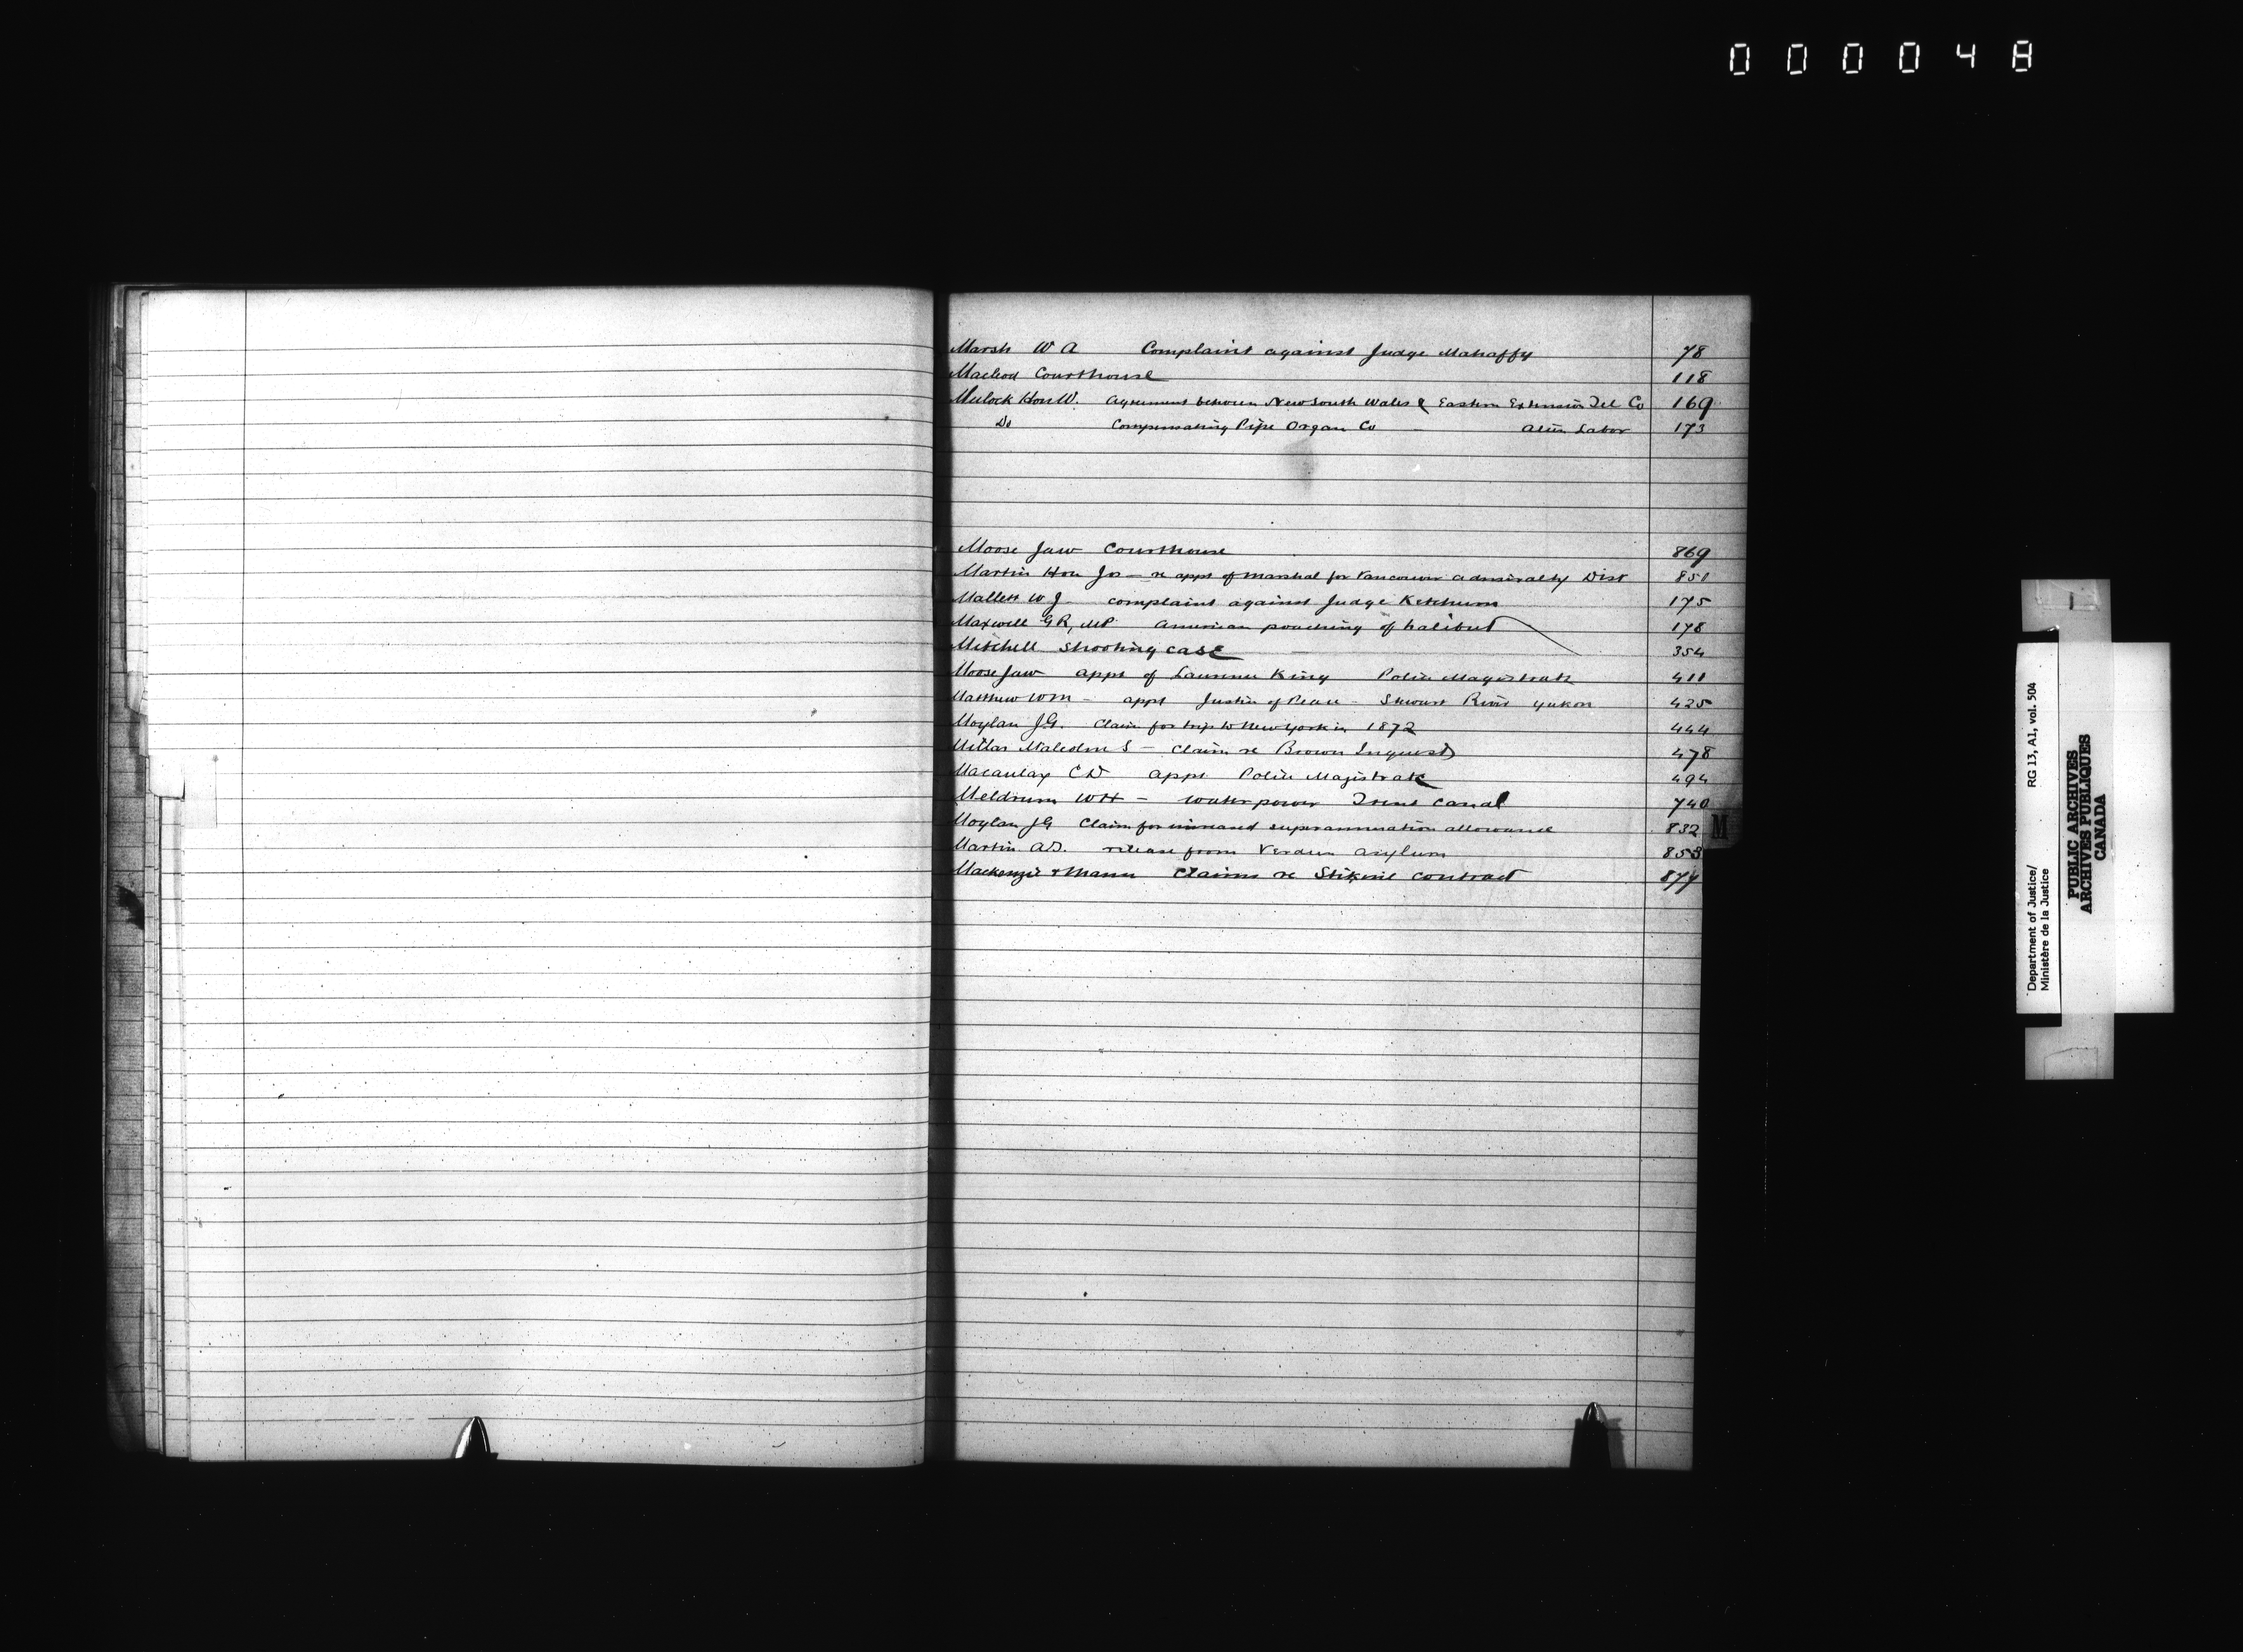 000048
Marsh W A Complaint against Judge Mahaffy 78
Macleod Courthouse 118
Mulock Hon W. Agreement between New South Wales & Eastern Extension Tel Co 169
Do Compensating Pipe Organ Co - Alien Labor 173
Moose Jaw Courthouse 869
Martin Hon Jos - re appt of Marshal for Vancouver Admiralty Dist 851
Mallett W J complaint against Judge Ketchum 175
Maxwell G R, MP American poaching of halibut 178
Mitchell Shooting case 354
Moose Jaw appt of Laurence King Police Magistrate 411
Matthew Wm - appt Justice of Peace - Stewart River Yukon 425
Moylan J.G. Claim for trip to New York in 1872 444
Millar Malcolm S - Claim re Brown Inquest 478
Macaulay C D appt Police Magistrate 494
Meldrum W H - water power Trent Canal 740
Moylan J G Claim for increased superannuation allowance 832
Martin A.D. release from Verdun asylum 853
Mackenzie & Mann Claims re Stikine contract 877
M
Department of Justice/ RG 13, A1, vol. 504
Ministère de la Justice
PUBLIC ARCHIVES
ARCHIVES PUBLIQUES
CANADA